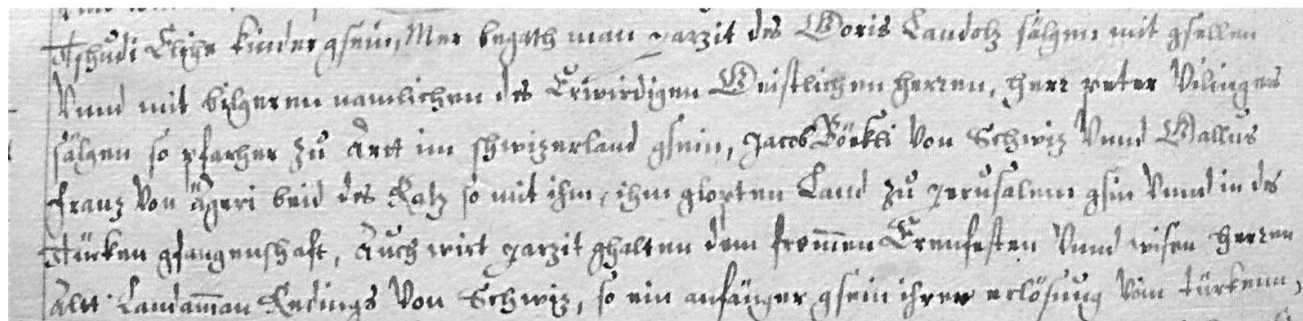 Tschudi Eliche kinder gsein, Mer begath man jarzit des Goris Landolz sälgen mit gsellen
Unnd mit bilgeren namlichen des Erwirdigen Geistlichen herren, herr peter Vilinges
sälgen so pfarher zů Artt im schwizerland gsein, Jacob Börkli Von Schwiz Unnd Gallus
franz Von Ägeri beid des Ratz so mit ihm, ihm glopten Land zů Jerusalem gsin Unnd in des
Türken gfangenschaft, Auch wirt jarzit ghalten dem frommen Erenfesten Unnd wisen herren
Altt Landaman Redings Von Schwiz, so ein anfänger gsein ihrer erlösung Vom türkenn,